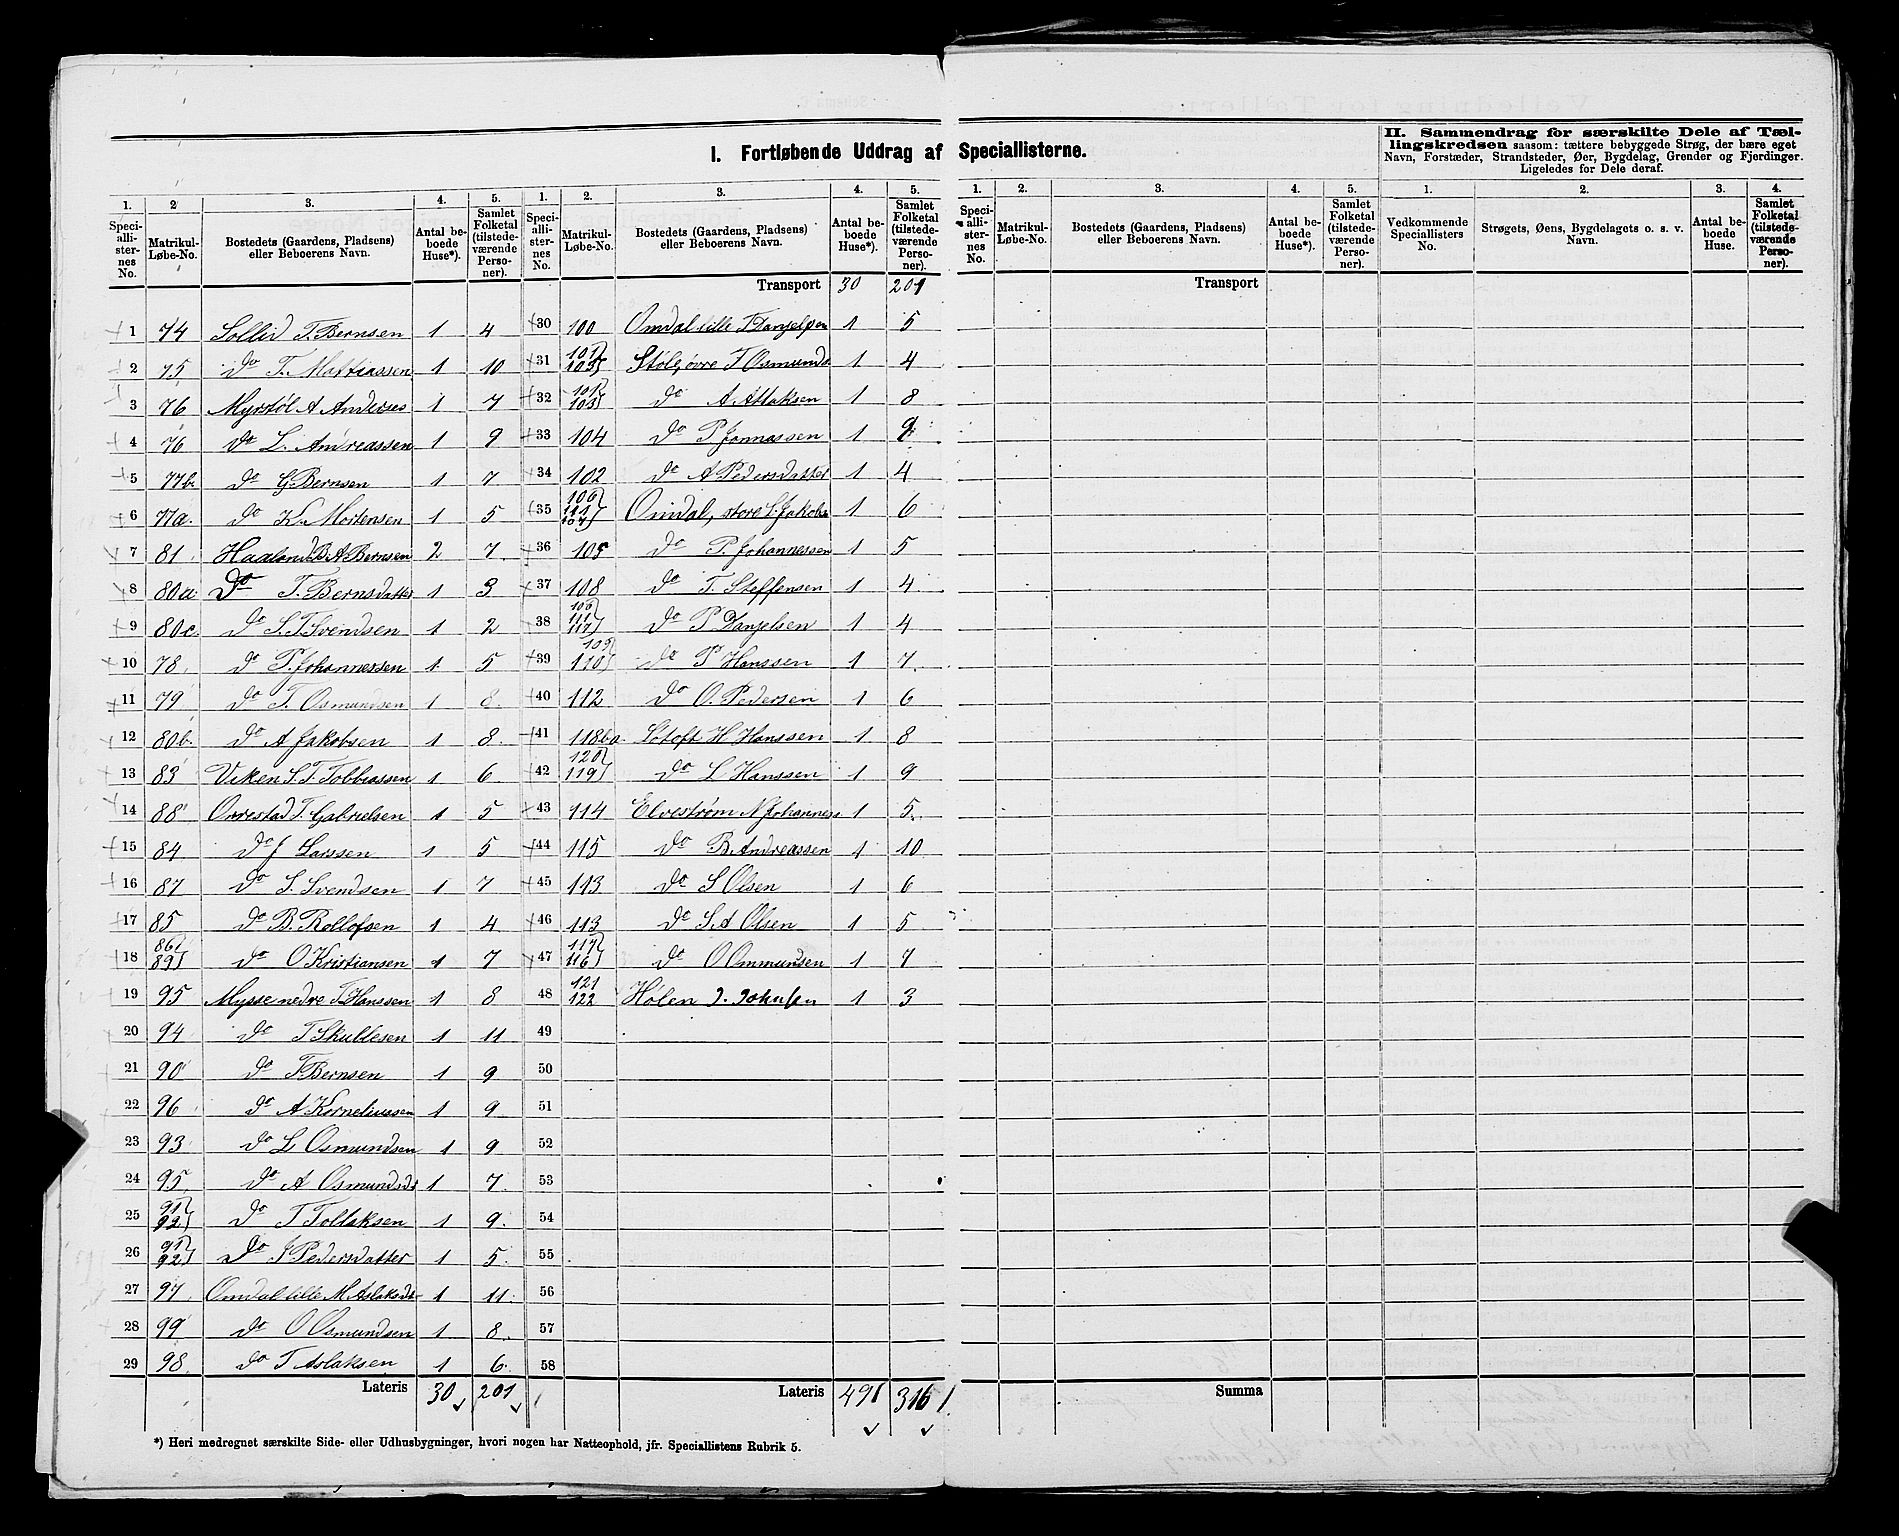 I. Fortløbende Uddrag af Speciallisterne.
II. Sammendrag for særskilte Dele af Tæl-
lingskredsen saasom: tættere bebyggede Strøg, der bære eget
Navn, Forstæder, Strandsteder, Øer, Bygdelag, Grender og Fjerdinger.
Ligeledes for Dele deraf.
1. 2 3. 4. 5. 1. 2. 3. 4. 5. 1. 2. 3. 4. 5. 1. 2. 3. 4.
Speciallisternes No. Matrikul-Løbe-No. Bostedets (Gaardens, Pladsens) eller Beboerens Navn. Antal beboede Huse*). Samlet Folketal (tilstedeværende Personer).
Speciallisternes No. Matrikul-Løbe-No. Bostedets (Gaardens, Pladsens) eller Beboerens Navn. Antal beboede Huse*). Samlet Folketal (tilstedeværende Personer).
Speciallisternes No. Matrikul-Løbe-No. Bostedets (Gaardens, Pladsens) eller Beboerens Navn. Antal beboede Huse*). Samlet Folketal (tilstedeværende Personer).
Vedkommende Speciallisters No. Strøgets, Øens, Bygdelagets o. s. v. Navn. Antal beboede Huse. Samlet Folketal (tilstedeværende Personer).
1 74 Sollid T. Bernsen 1 4
2 75 do T. Mattiassen 1 10
3 76 Myrstøl A Anderses 1 7
4 76 do L. Andreassen 1 9
5 77b. do G Bernsen 1 7
6 77a. do K. Mortensen 1 5
7 81 Haaland B. A. Bernsen 2 7
8 80a do T. Bernsdatter 1 3
9 80c. do S. T. Svendsen 1 2
10 78 do P. Johannessen 1 5
11 79 do T. Osmundsen 1 8
12 80b. do A Jakobsen 1 8
13 83 Viken S. T. Tobbiassen 1 6
14 88 Orrestad T. Gabrielsen 1 5
15 84 do J Larssen 1 5
16 87 do S. Svendsen 1 7
17 85 do B. Rollofsen 1 4
18 86 89 do O Kristiansen 1 7
19 95 Mysse nedre T. Hanssen 1 8
20 94 do T Skullesen 1 11
21 90 do T. Bernsen 1 9
22 96 do A Korneliussen 1 9
23 93 do L Osmundsen 1 9
24 95 do A Osmundsds 1 7
25 91 92 do T Tollaksen 1 9
26 91 92 do J Pedersdatter 1 5
27 97 Omdal lille M Aslaksdt 1 11
28 99 do O Osmundsen 1 8
29 98 do T Aslaksen 1 6
Lateris 30 201
Transport 30 201
30 100 Omdal lille T Danjelsen 1 5
31 101 103 Støle, øvre T Osmunds 1 4
32 101 103 do A Atlaksen 1 8
33 104 do P Jonnassen 1 9
34 102 do A Pedersdatter 1 4
35 106 111 107 Omdal, store S. Jakobs 1 6
36 105 do P. Johannessen 1 5
37 108 do T. Steffensen 1 4
38 106 111 117 do P Danjelsen 1 4
39 109 110 do P Hanssen 1 7
40 112 do O. Pedersen 1 6
41 118baLøtoft H Hanssen 1 8
42 120 119 do L Hanssen 1 9
43 114 Elvestrøm N Johanness 1 5
44 115 do B. Andreassen 1 10
45 113 do S Olsen 1 6
46 113 do S. A Olsen 1 5
47 117 116 do O Ommundsen 1 7
48 121 122 Hølen J. Johnsen 1 3
49
50
51
52
53
54
55
56
57
58
Lateris 49 316
Transport
Summa
*) Heri medregnet særskilte Side- eller Udhusbygninger, hvori nogen har Natteophold, jfr. Speciallistens Rubrik 5.